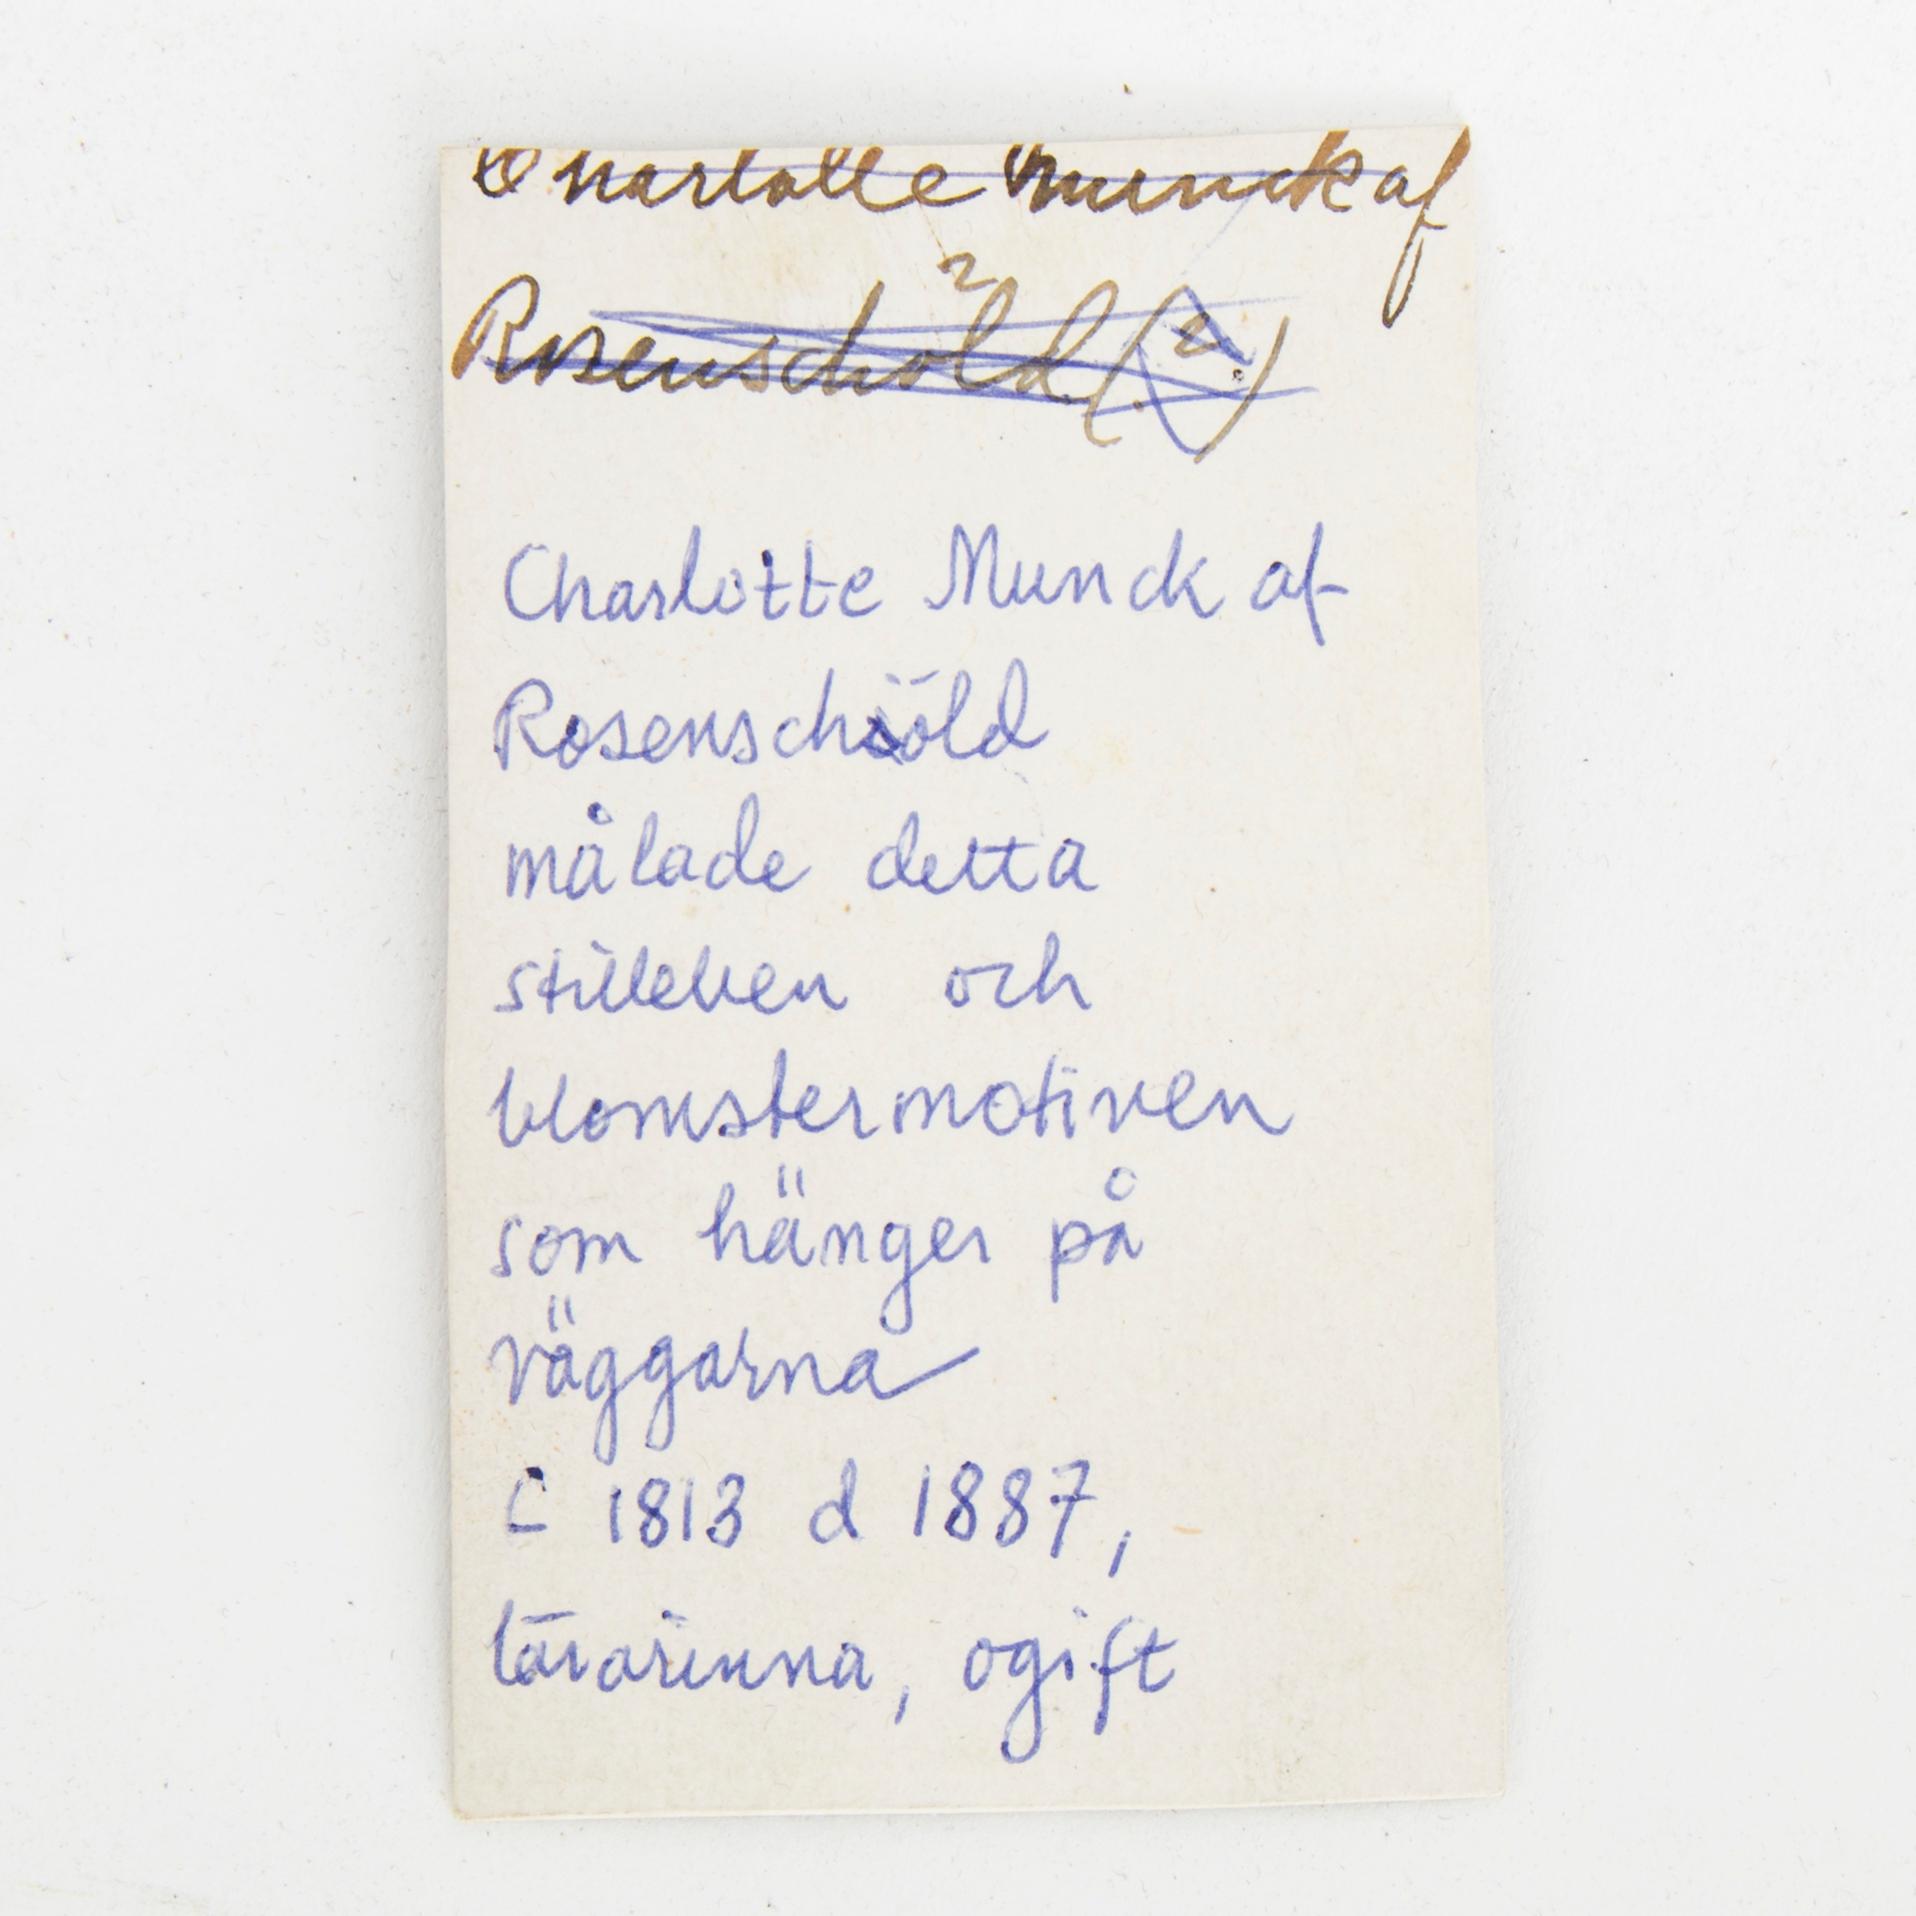 Charlotte Munck af
Rosenschöld (?)
Charlotte Munck af
Rosenschöld
målade detta
stilleben och
blomstermotiven
som hänger på
väggarna
1813 d 1887,
lärarinna, ogift